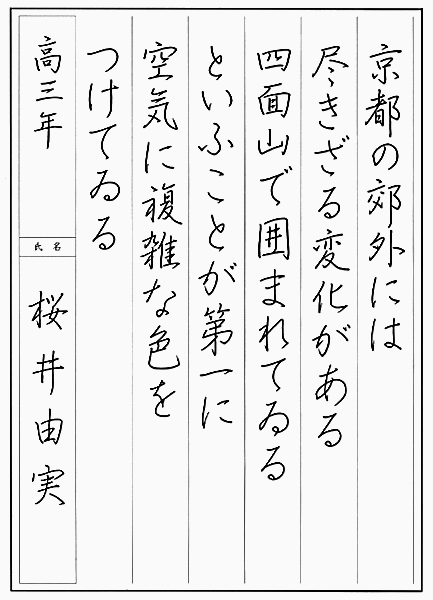 京都の郊外には
尽きざる変化がある
四面山で囲まれてゐる
といふことが第一に
空気に複雑な色を
つけてゐる
高三年
氏名
桜井由実